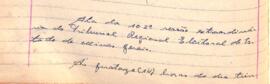 Ata da 102ª sessão extraordiná-
ria do Tribunal Regional Eleitoral do Es-
tado de Minas Gerais.
Às quatorze (14) horas do dia trin